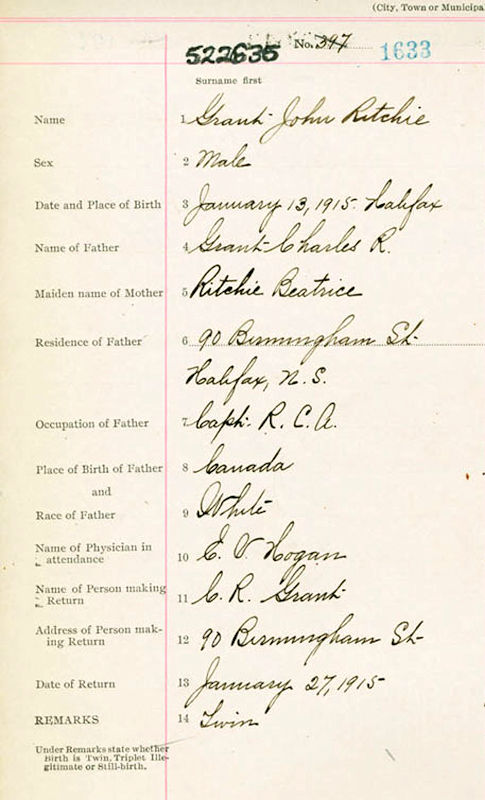 (City, Town or Municipa
522635 No. 397 1633
Surname first
Name 1 Grant John Ritchie
Sex 2 Male
Date and Place of Birth 3 January 13, 1915. Halifax
Name of Father 4 Grant Charles R.
Maiden name of Mother 5 Ritchie Beatrice
Residence of Father 6 90 Birmingham St.
Halifax, N.S.
Occupation of Father 7 Capt. R. C. A.
Place of Birth of Father 8 Canada
and
Race of Father 9 White
Name of Physician in
attendance 10 E. V. Hogan
Name of Person making
Return 11 C. R. Grant
Address of Person mak-
ing Return 12 90 Birmingham St.
Date of Return 13 January 27, 1915
REMARKS 14 Twin
Under Remarks state whether
Birth is Twin, Triplet Ille-
gitimate or Still-birth.